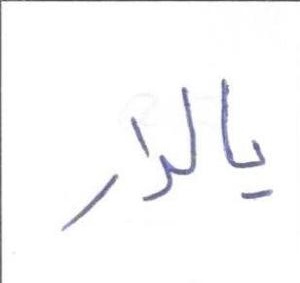 يالدار